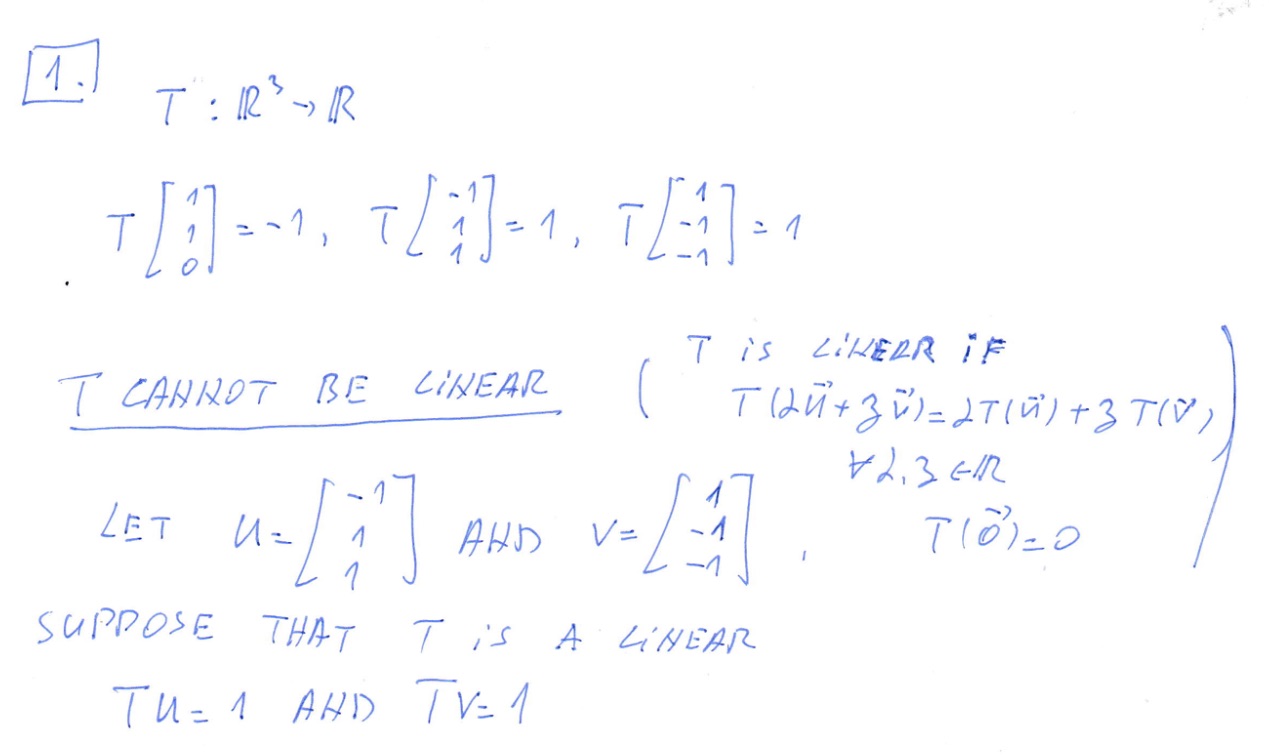 1.
T : ℝ³ → ℝ
T[1 1 0] = -1, T[-1 1 1] = 1, T[1 -1 -1] = 1
T CANNOT BE LINEAR ( T is LINEAR iF
T(αu⃗ + βv⃗) = αT(u⃗) + βT(v⃗)
∀ α, β ∈ ℝ
T(0⃗) = 0 )
LET u = [-1 1 1] AND v = [1 -1 -1].
SUPPOSE THAT T is A LINEAR
Tu = 1 AND Tv = 1